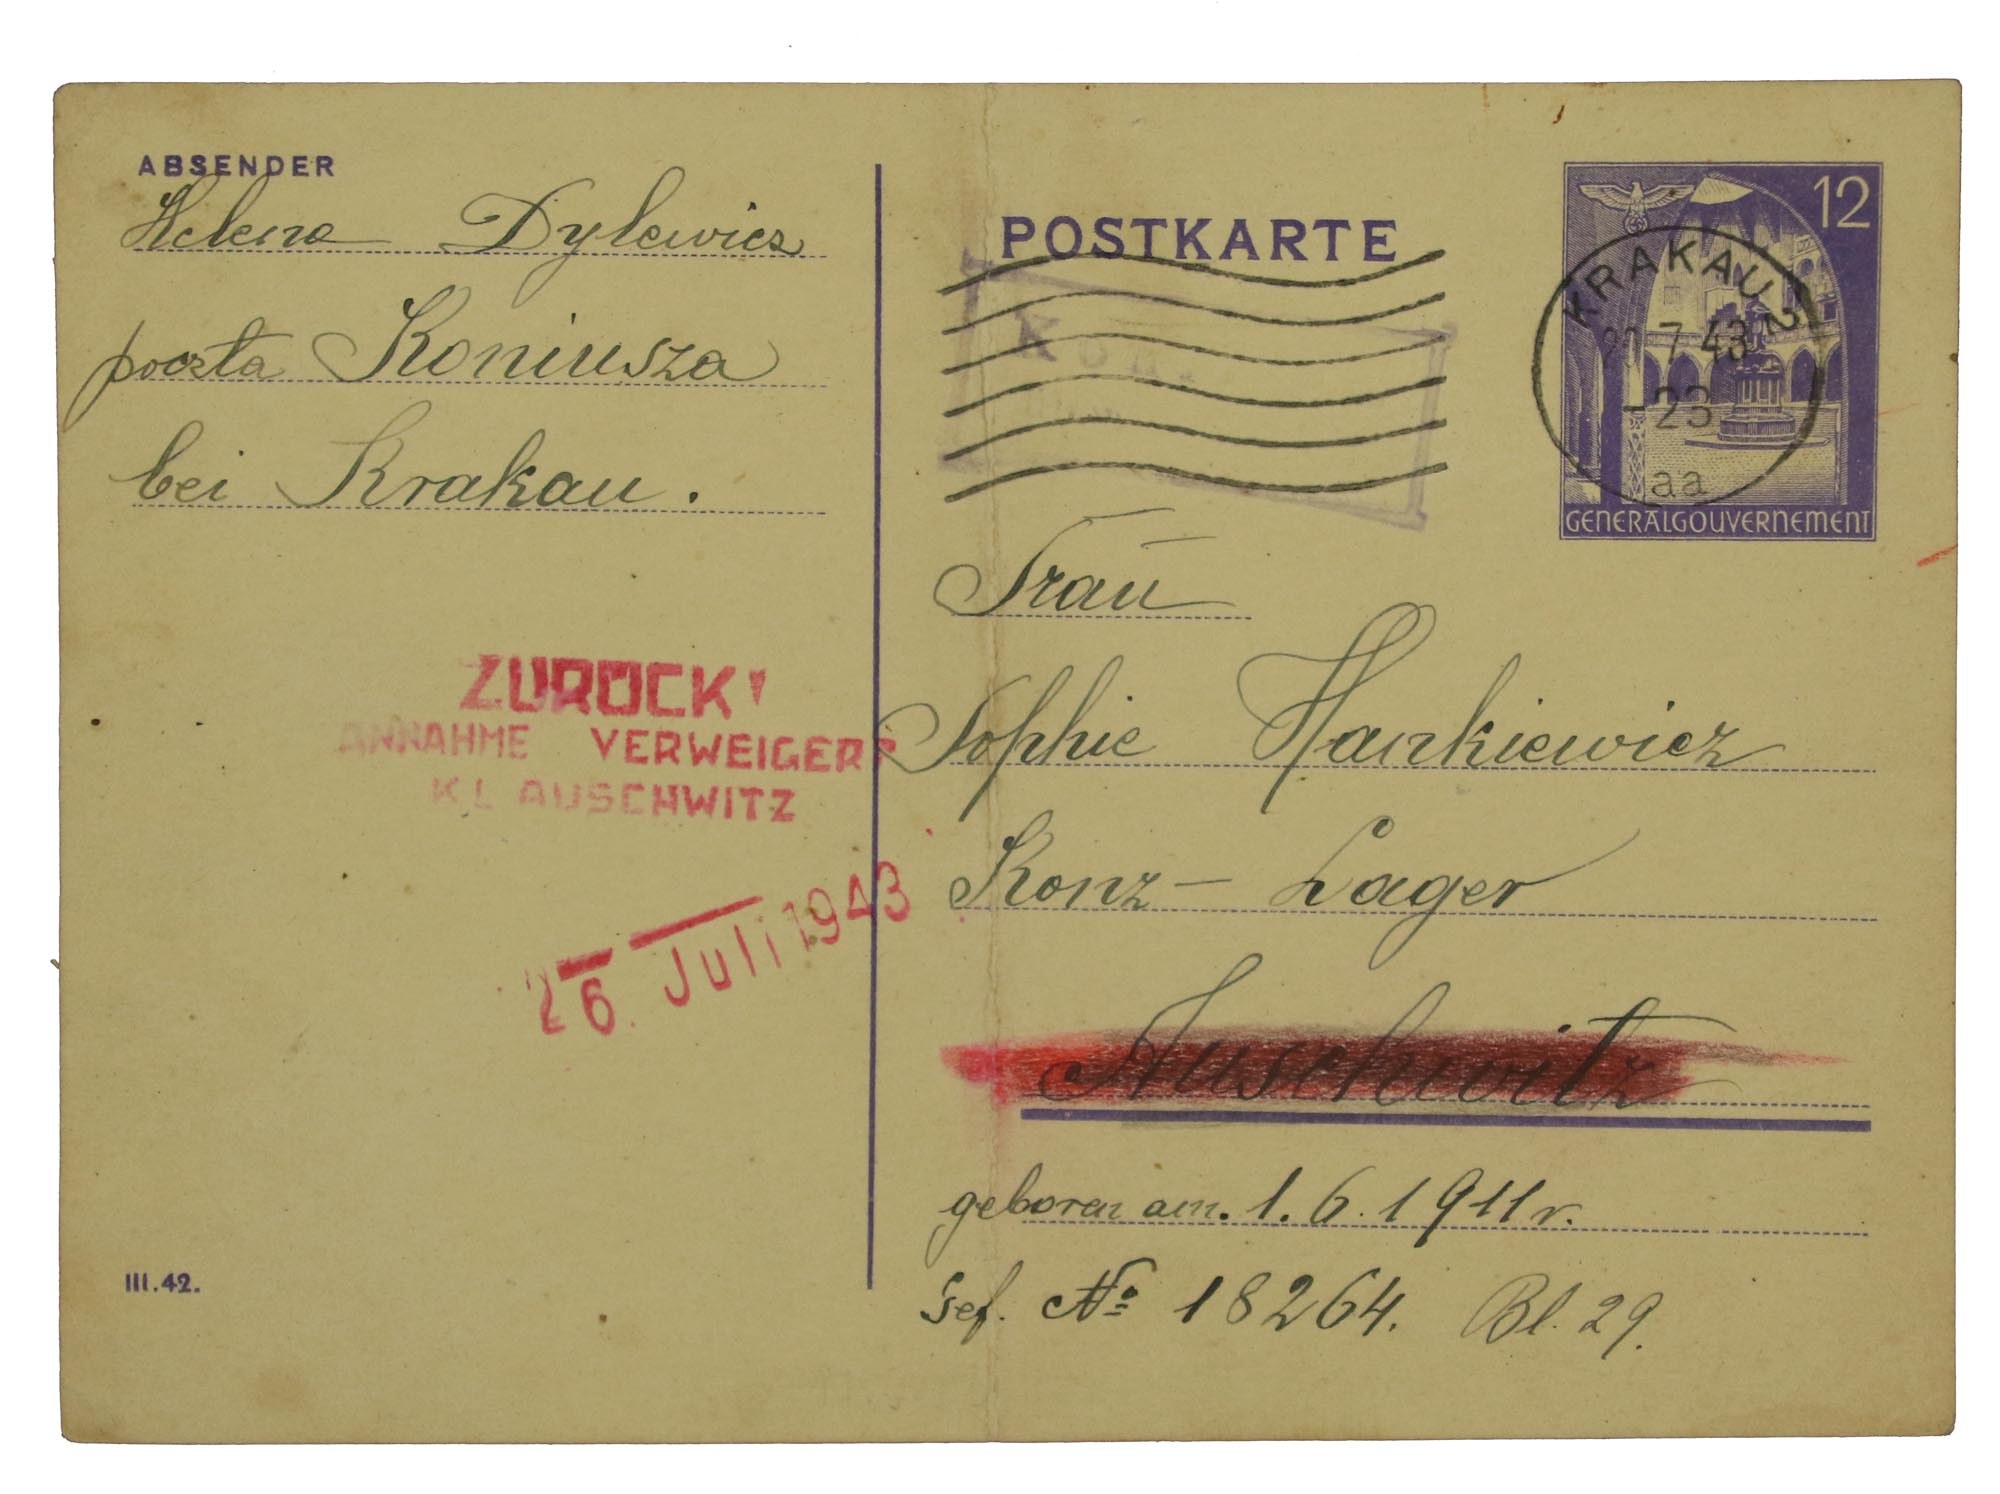 ABSENDER
Helena Dylewicz
poczta Koniusza
bei Krakau.
ZURÜCK!
ANNAHME VERWEIGERT
KL AUSCHWITZ
26. Juli 1943
III.42.
POSTKARTE
12
KRAKAU 2
7.43
-23
aa
GENERALGOUVERNEMENT
Frau
Sophie Hankiewicz
Konz-Lager
Auschwitz
geboren am. 1.6.1911r.
Gef. No 18264. Bl. 29.